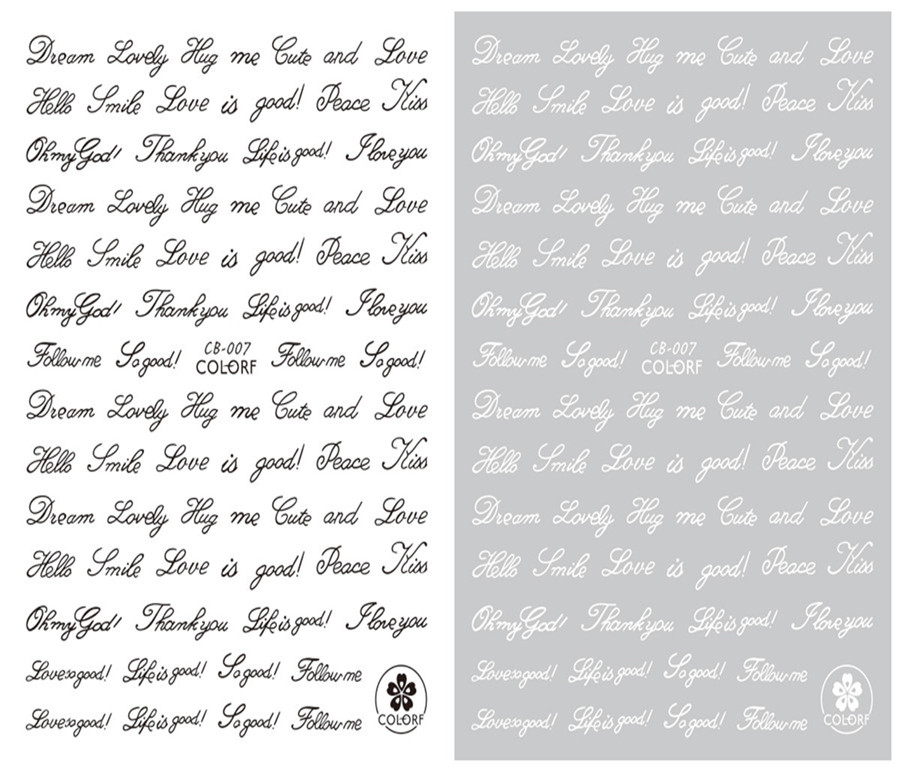 Dream Lovely Hug me Cute and Love
Hello Smile Love is good! Peace Kiss
Oh my God! Thank you Life is good! I love you
Dream Lovely Hug me Cute and Love
Hello Smile Love is good! Peace Kiss
Oh my God! Thank you Life is good! I love you
Follow me So good! CB-007 COLORF Follow me So good!
Dream Lovely Hug me Cute and Love
Hello Smile Love is good! Peace Kiss
Dream Lovely Hug me Cute and Love
Hello Smile Love is good! Peace Kiss
Oh my God! Thank you Life is good! I love you
Love so good! Life is good! So good! Follow me
Love so good! Life is good! So good! Follow me
COLORF
Dream Lovely Hug me Cute and Love
Hello Smile Love is good! Peace Kiss
Oh my God! Thank you Life is good! I love you
Dream Lovely Hug me Cute and Love
Hello Smile Love is good! Peace Kiss
Oh my God! Thank you Life is good! I love you
Follow me So good! CB-007 COLORF Follow me So good!
Dream Lovely Hug me Cute and Love
Hello Smile Love is good! Peace Kiss
Dream Lovely Hug me Cute and Love
Hello Smile Love is good! Peace Kiss
Oh my God! Thank you Life is good! I love you
Love so good! Life is good! So good! Follow me
Love so good! Life is good! So good! Follow me
COLORF